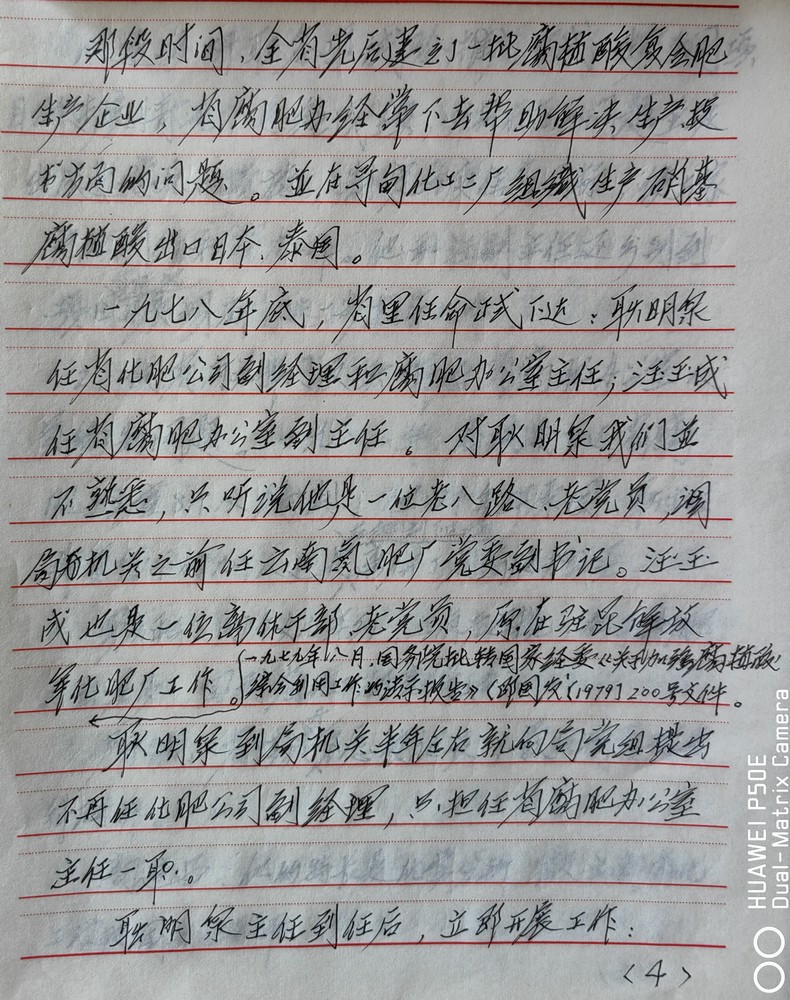 那段时间，全省先后建立了一批腐植酸复合肥
生产企业，省腐肥办经常下去帮助解决生产技
术方面的问题。並在寻甸化工二厂组织生产硝基
腐植酸出口日本、泰国。
一九七八年底，省里任命正式下达：耿明
任省化肥公司副经理和腐肥办公室主任；汪玉成
任省腐肥办公室副主任。对耿明我们並
不熟悉，只听说他是一位老八路、老党员，调
局机关之前任云南氮肥厂党委副书记。汪玉
成也是一位离休干部、老党员，原在驻昆解放
军化肥厂工作。
一九七九年八月，国务院批转国家经委《关于加强腐植酸
综合利用工作的请示报告》（即国发〔1979〕200号文件。
耿明到局机关半年左右就向局党组提出
不再任化肥公司副经理，只担任省腐肥办公室
主任一职。
耿明主任到任后，立即开展工作：
〈4〉
HUAWEI P50E
Dual-Matrix Camera